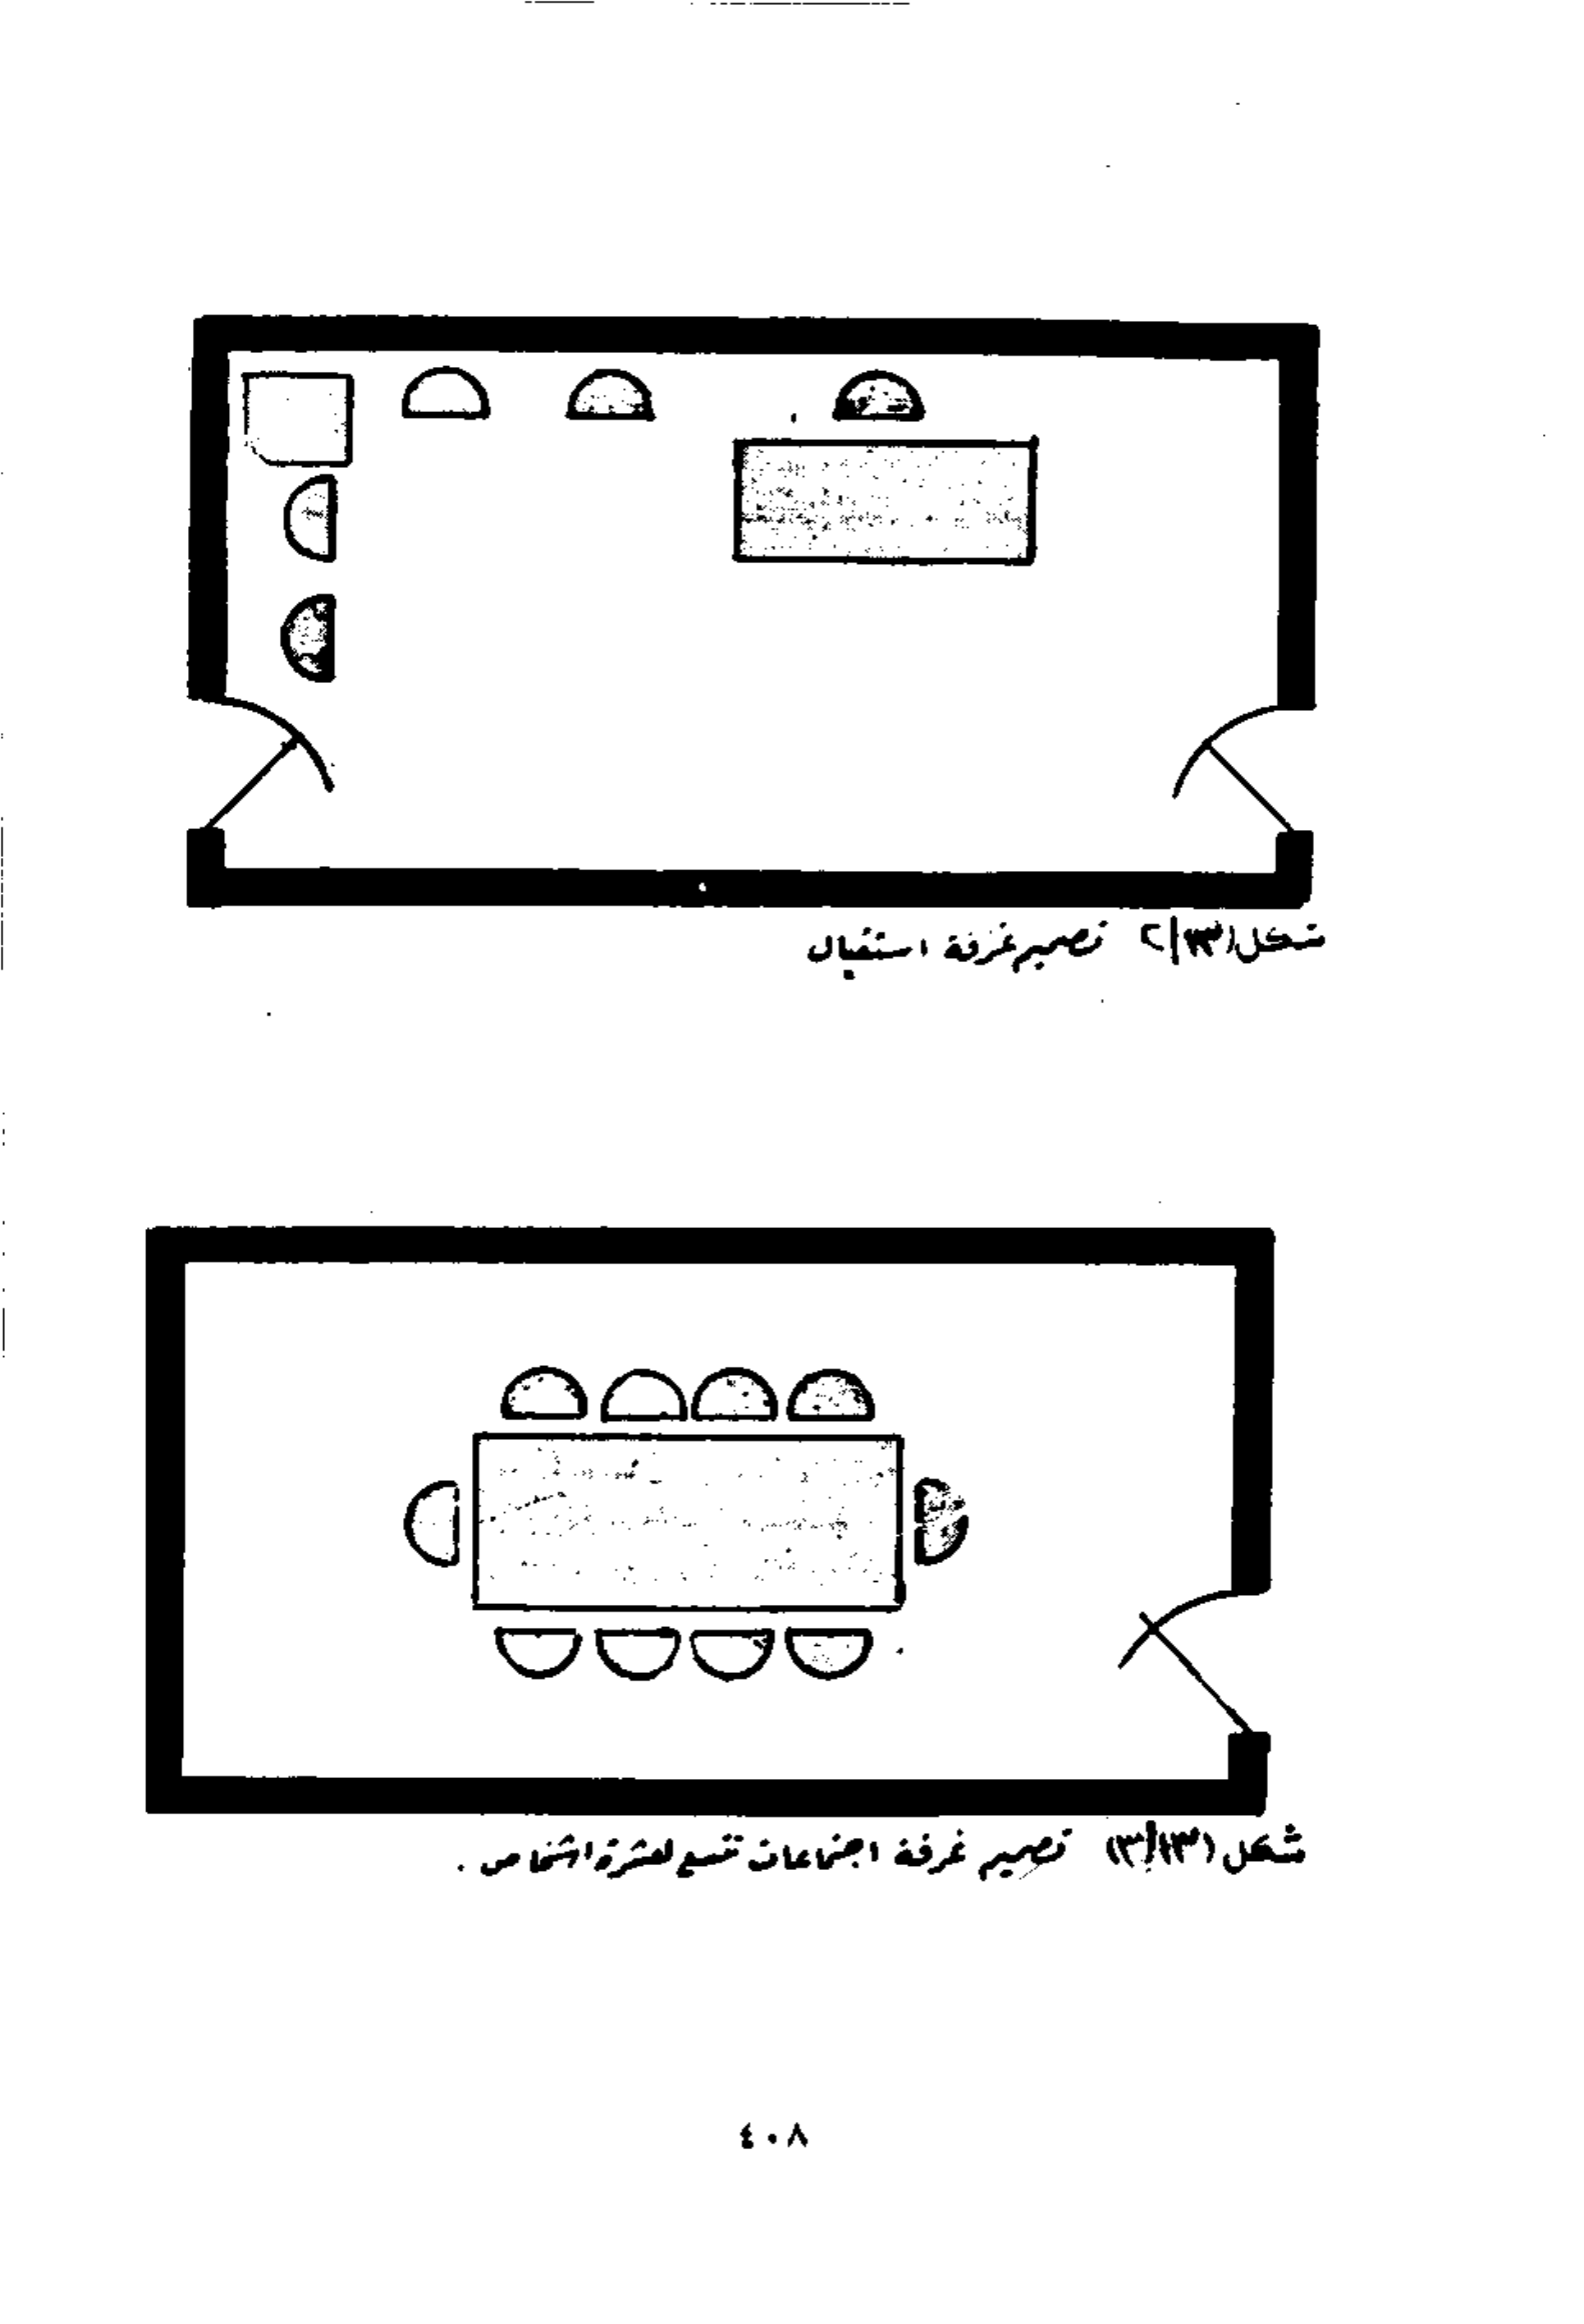 شكل (٢/١٣) تصميم غرفة استقبال
شكل (٣/١٣) تصميم غرفة اجتماعات تتسع لعشرة اشخاص .
٤٠٨